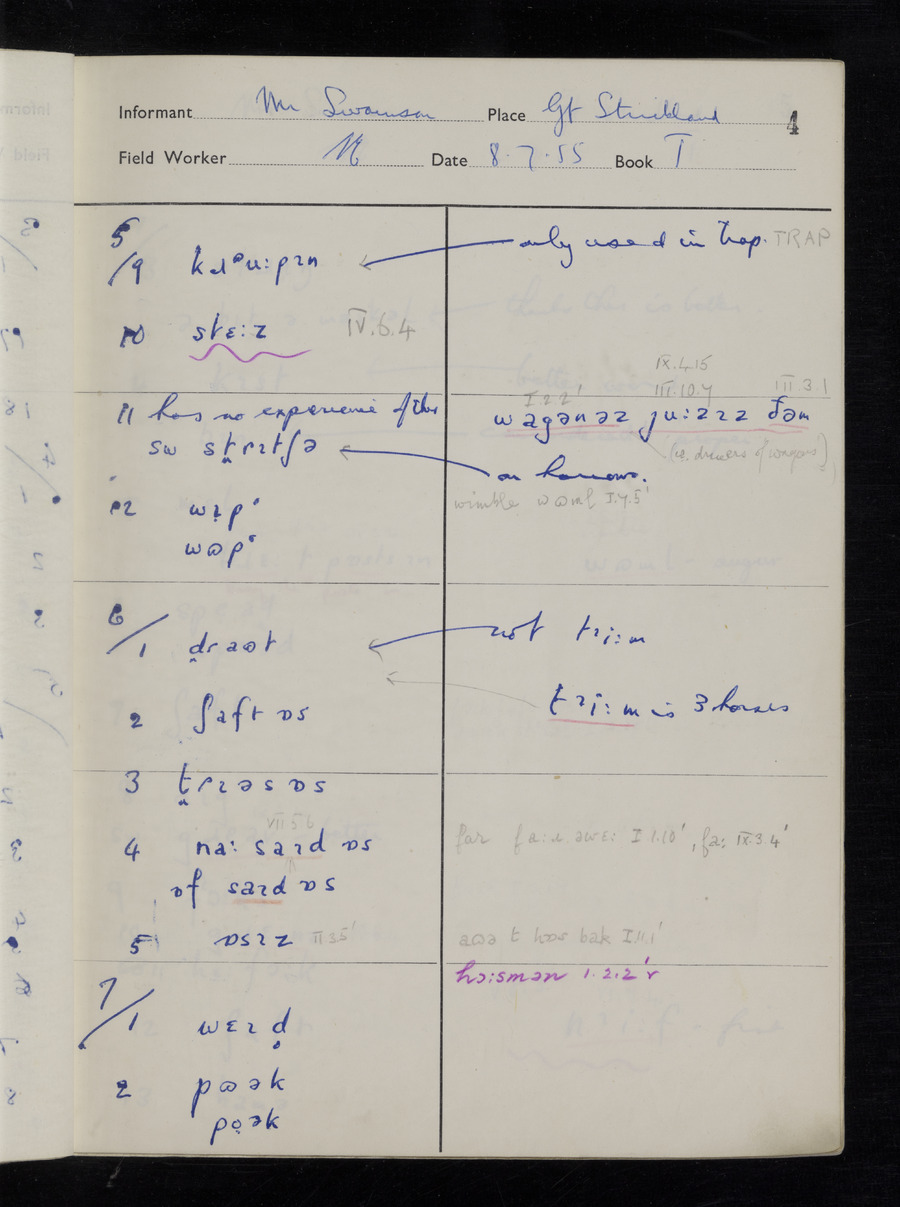 Informant Mr Swainson Place Gt Strickland 4
Field Worker Date 8.7.55 Book I
5/9 only used in trap. TRAP
10 stɛ:z IV.6.4
IX.4.15
I.2.2' III.10.7 III.3.1
11 has no experience of this wagənəz ju:zɪz ðəm
sw on harrows. (i.e. drawers of wagons)
12 wɪp' wimble I.7.5'
wɒp'
6/1 draɷt not trɪ:m
2 ʃaft ɒs trɪ:m is 3 horses
3 trɪəs ɒs
VII 5 6
4 na: saɪd ɒs far I 1.10', fa: IX.3.4'
ɒf saɪd ɒs
5 ɒsɪz II 3 5' t hɒs bak I.11.1'
hɔ:smən 1.2.2'r
7/1 wɛɪd
2 pɷək
pọək